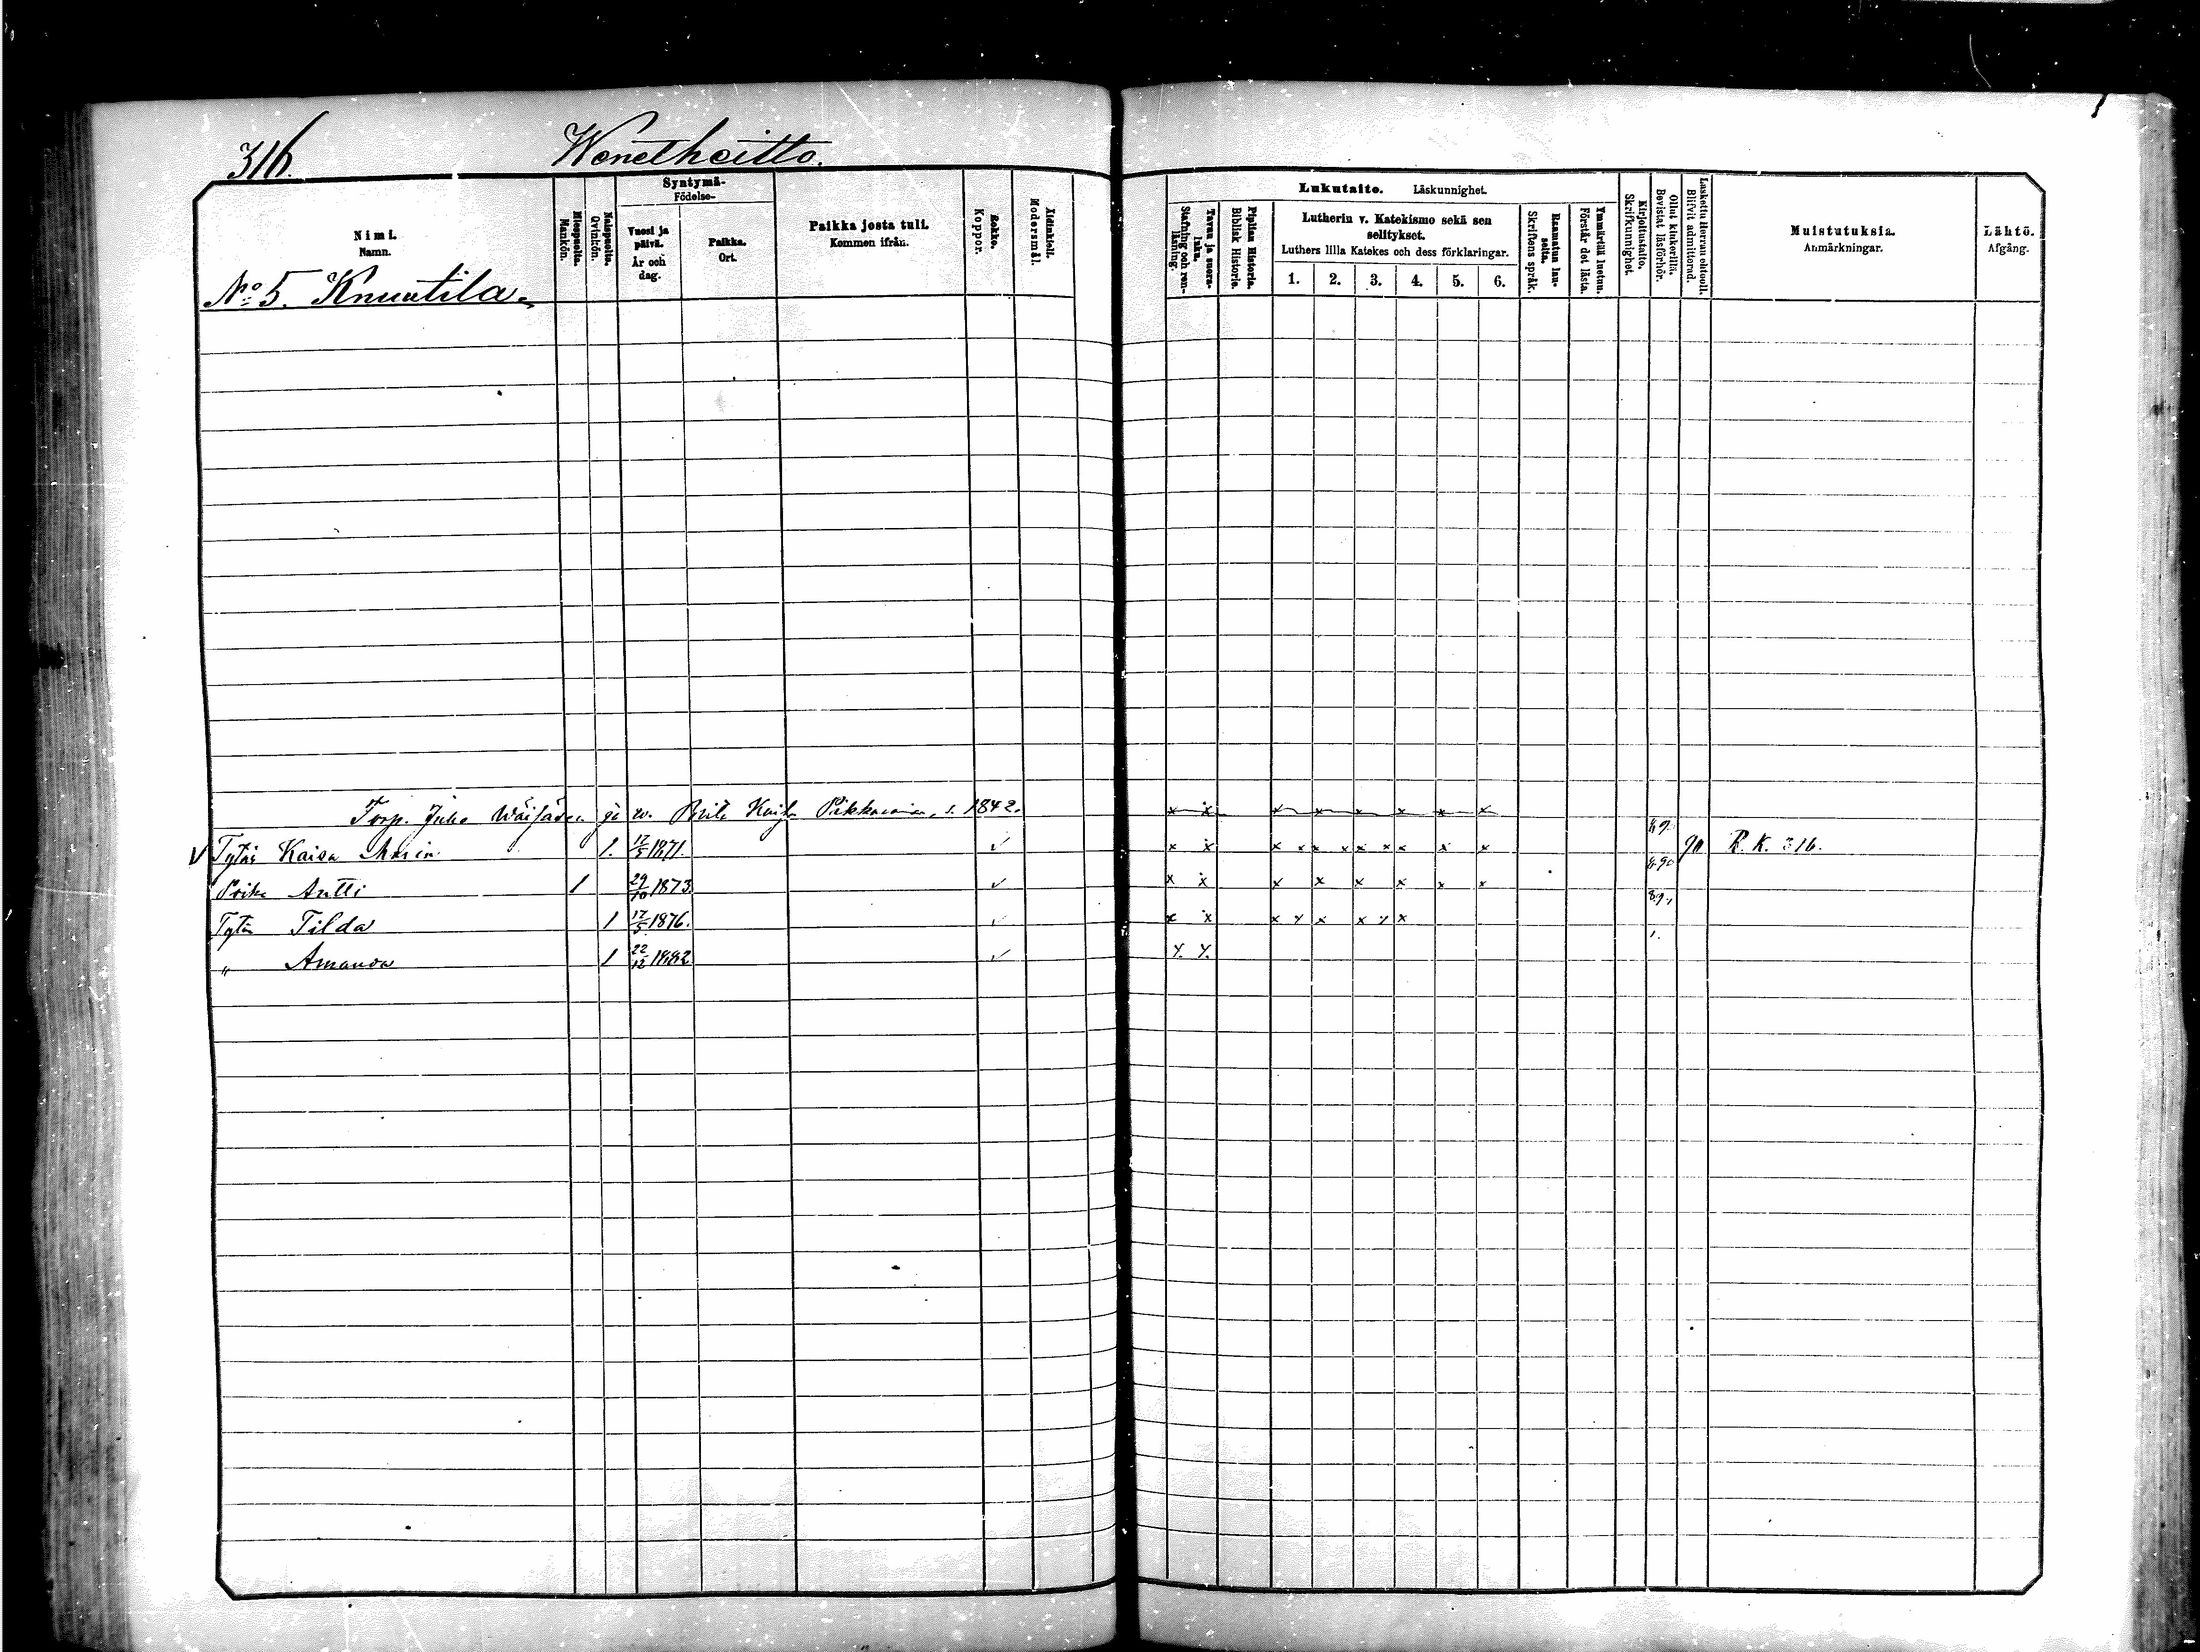 316. Wenetheitto.
Nimi. Namn.
Miespuolta. Mankön.
Naispuolta. Qvinkön.
Syntymä- Födelse-
Vuosi ja päivä. År och dag.
Paikka. Ort.
Paikka josta tuli. Kommen ifrån.
Rokko. Koppor.
Äidinkieli. Modersmål.
Tavau ja suora- luku. Stafning och ren- läsning.
Piplian Historia. Biblisk Historie.
Lukutaito. Läskunnighet.
Lutherin v. Katekismo sekä sen selitykset.
Luthers lilla Katekes och dess förklaringar.
1. 2. 3. 4. 5. 6.
Raamatun lau- seita. Skriftens språk.
Ymmärtää luetun. Förstår det lästa.
Kirjoitustaito. Skrifkunnighet.
Ollut kinkerillä. Bevistat läsförhör.
Laskettu Herran ehtooll. Blifvit admitterad.
Muistutuksia. Anmärkningar.
Lähtö. Afgång.
No 5. Knuutila.
Torp. Juho Wäisäsen ja w. Kaisa s. 1842. x x x x x x x x
V Tytär Kaisa Maria 1. 17/5 1871. ✓ x x x x x x x x x x x 89. 90 R. K. 316.
Poika Antti 1 29/10 1873. ✓ x x x x x x x x 8.90
Tytär Tilda 1 17/5 1876. ✓ x x x x x x x x 89.
" Amanda 1 22/12 1882. ✓ x. x. 1.